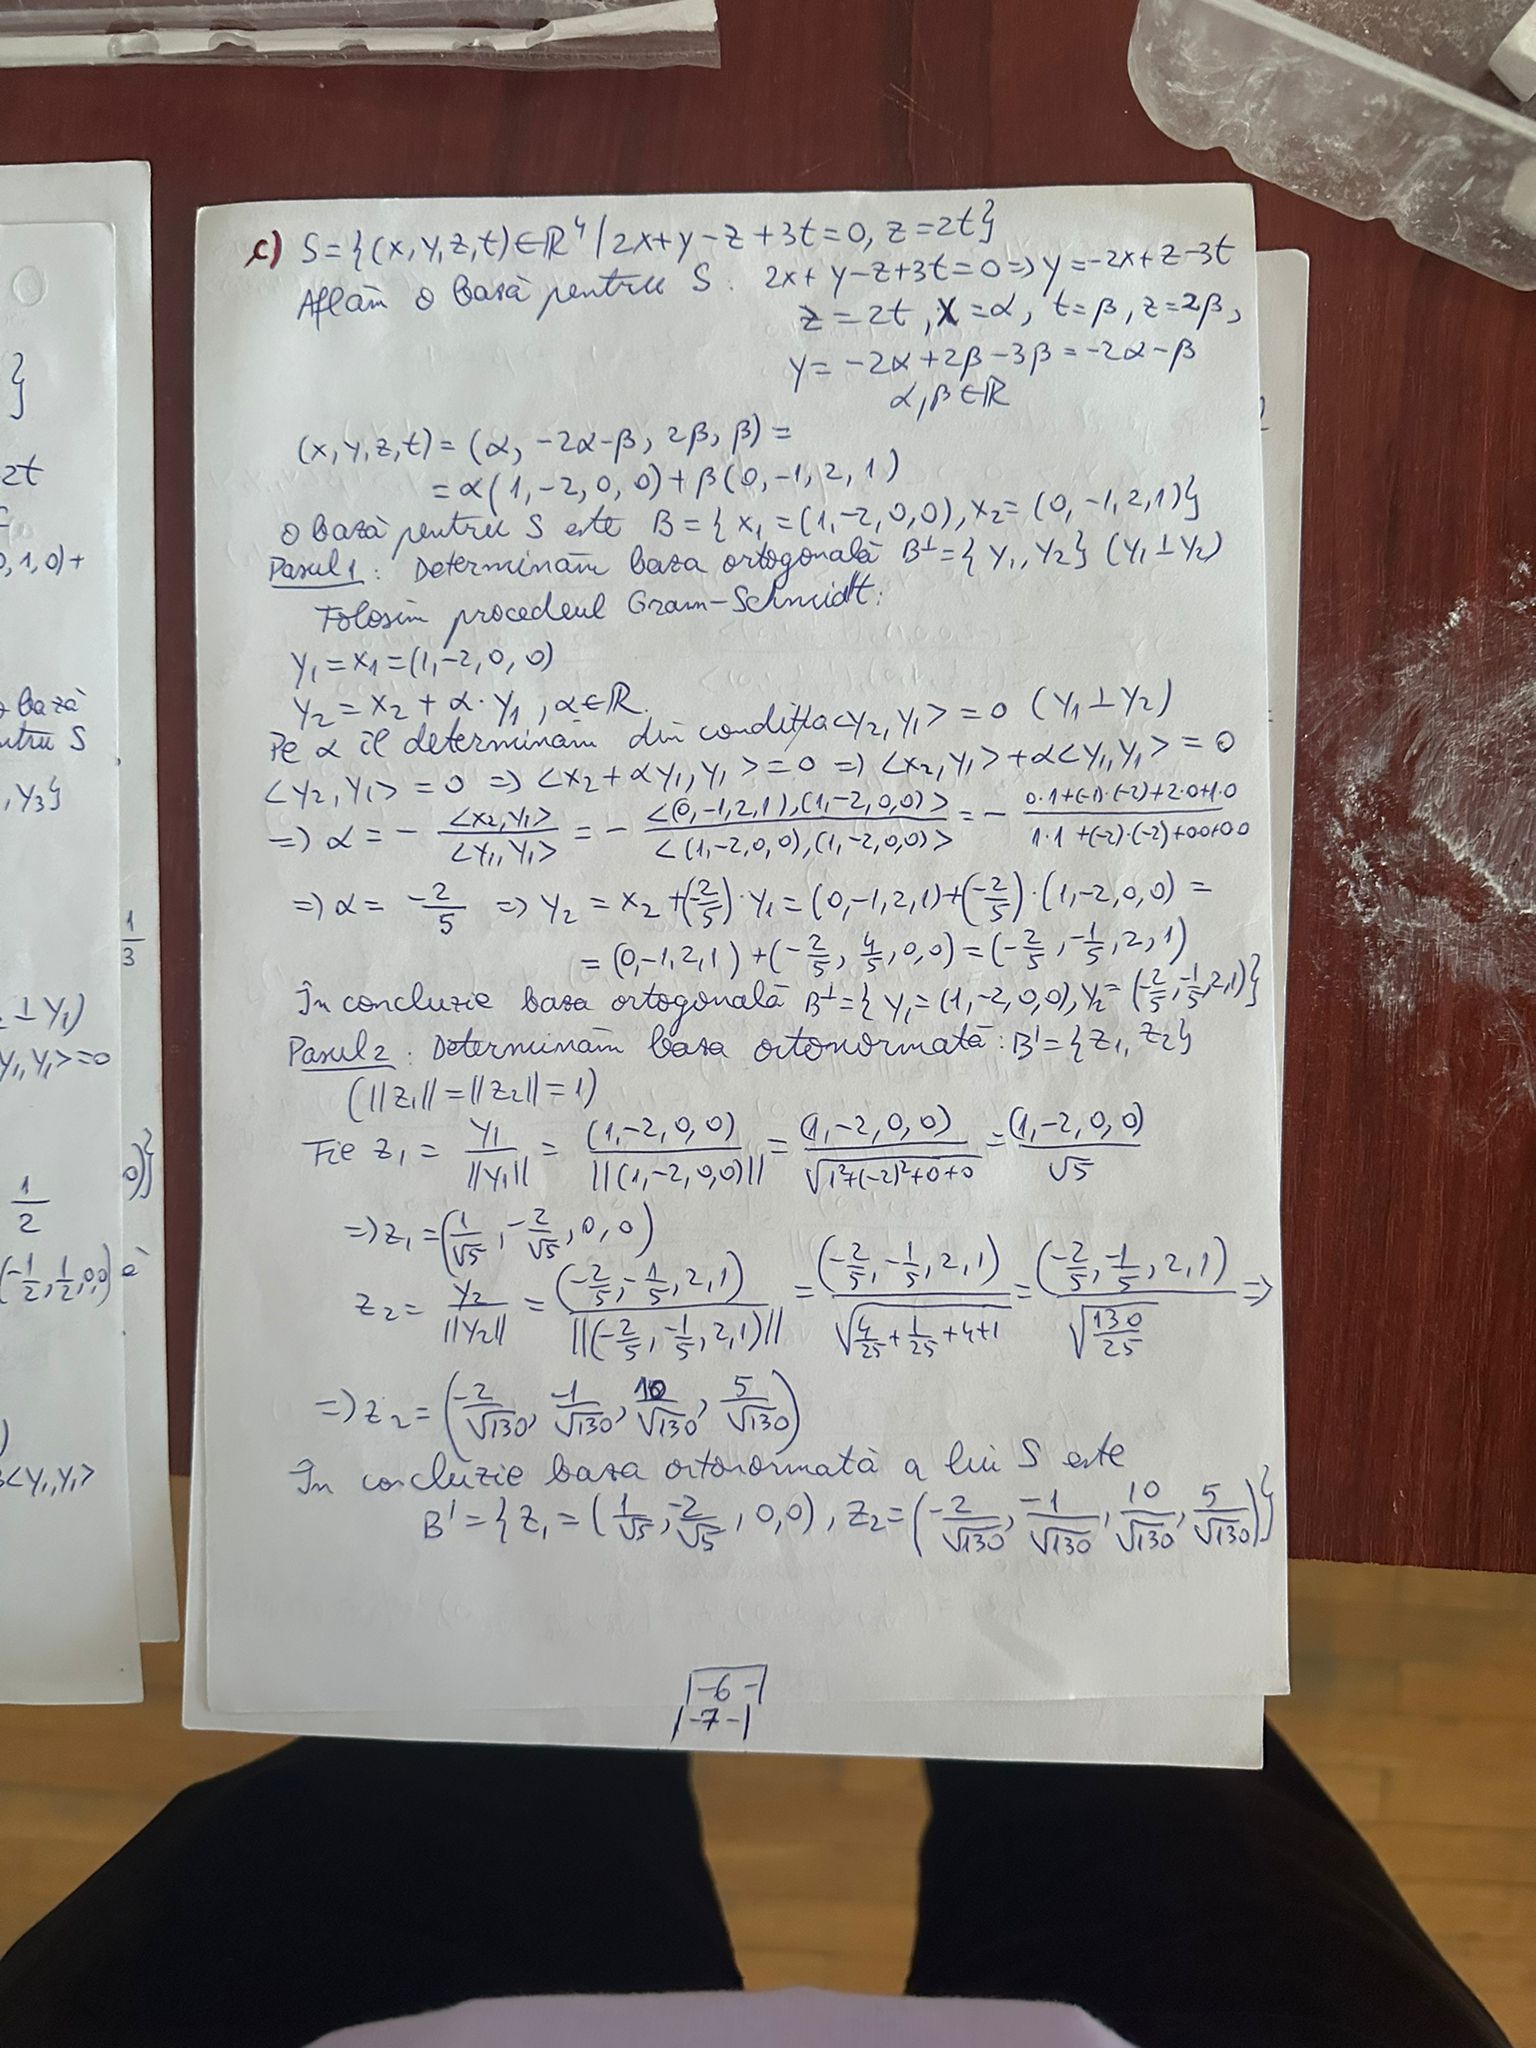 }
2t
0,1,0)+
bază
S
,Y₃}
1/3
⊥Y₁)
Y₁,Y₁>=0
0)}
1/2
(-1/2,1/2,0,0)
)
<Y₁,Y₁>
c) S={(x,y,z,t)∈ℝ⁴/2x+y-z+3t=0, z=2t}
Aflăm o bază pentru S: 2x+y-z+3t=0⇒y=-2x+z-3t
z=2t, x=α, t=β, z=2β,
y=-2α+2β-3β=-2α-β
α,β∈ℝ
(x,y,z,t)=(α,-2α-β,2β,β)=
=α(1,-2,0,0)+β(0,-1,2,1)
o bază pentru S este B={x₁=(1,-2,0,0),x₂=(0,-1,2,1)}
Pasul 1: Determinăm baza ortogonală B⊥={Y₁,Y₂} (Y₁⊥Y₂)
Folosim procedeul Gram-Schmidt:
Y₁=x₁=(1,-2,0,0)
Y₂=x₂+α·Y₁,α∈ℝ.
Pe α îl determinăm din condiția<Y₂,Y₁>=0 (Y₁⊥Y₂)
<Y₂,Y₁>=0 ⇒ <x₂+αY₁,Y₁>=0 ⇒ <x₂,Y₁>+α<Y₁,Y₁>=0
⇒ α=- <x₂,Y₁>/<Y₁,Y₁> = - <(0,-1,2,1),(1,-2,0,0)>/<(1,-2,0,0),(1,-2,0,0)> = - 0·1+(-1)·(-2)+2·0+1·0/1·1+(-2)·(-2)+0·0+0·0
⇒ α= -2/5 ⇒ Y₂=x₂+(-2/5)·Y₁=(0,-1,2,1)+(-2/5)·(1,-2,0,0)=
=(0,-1,2,1)+(-2/5,4/5,0,0)=(-2/5,-1/5,2,1)
În concluzie baza ortogonală B⊥={Y₁=(1,-2,0,0),Y₂=(-2/5,-1/5,2,1)}
Pasul 2: Determinăm baza ortonormată: B'={z₁,z₂}
(||z₁||=||z₂||=1)
Fie z₁= Y₁/||Y₁|| = (1,-2,0,0)/||(1,-2,0,0)|| = (1,-2,0,0)/√(1²+(-2)²+0+0) = (1,-2,0,0)/√5
⇒z₁=(1/√5,-2/√5,0,0)
z₂= Y₂/||Y₂|| = (-2/5,-1/5,2,1)/||(-2/5,-1/5,2,1)|| = (-2/5,-1/5,2,1)/√(4/25+1/25+4+1) = (-2/5,-1/5,2,1)/√(130/25) ⇒
⇒z₂=(-2/√130,-1/√130,10/√130,5/√130)
În concluzie baza ortonormată a lui S este
B'={z₁=(1/√5,-2/√5,0,0),z₂=(-2/√130,-1/√130,10/√130,5/√130)}
|-6-|
|-7-|